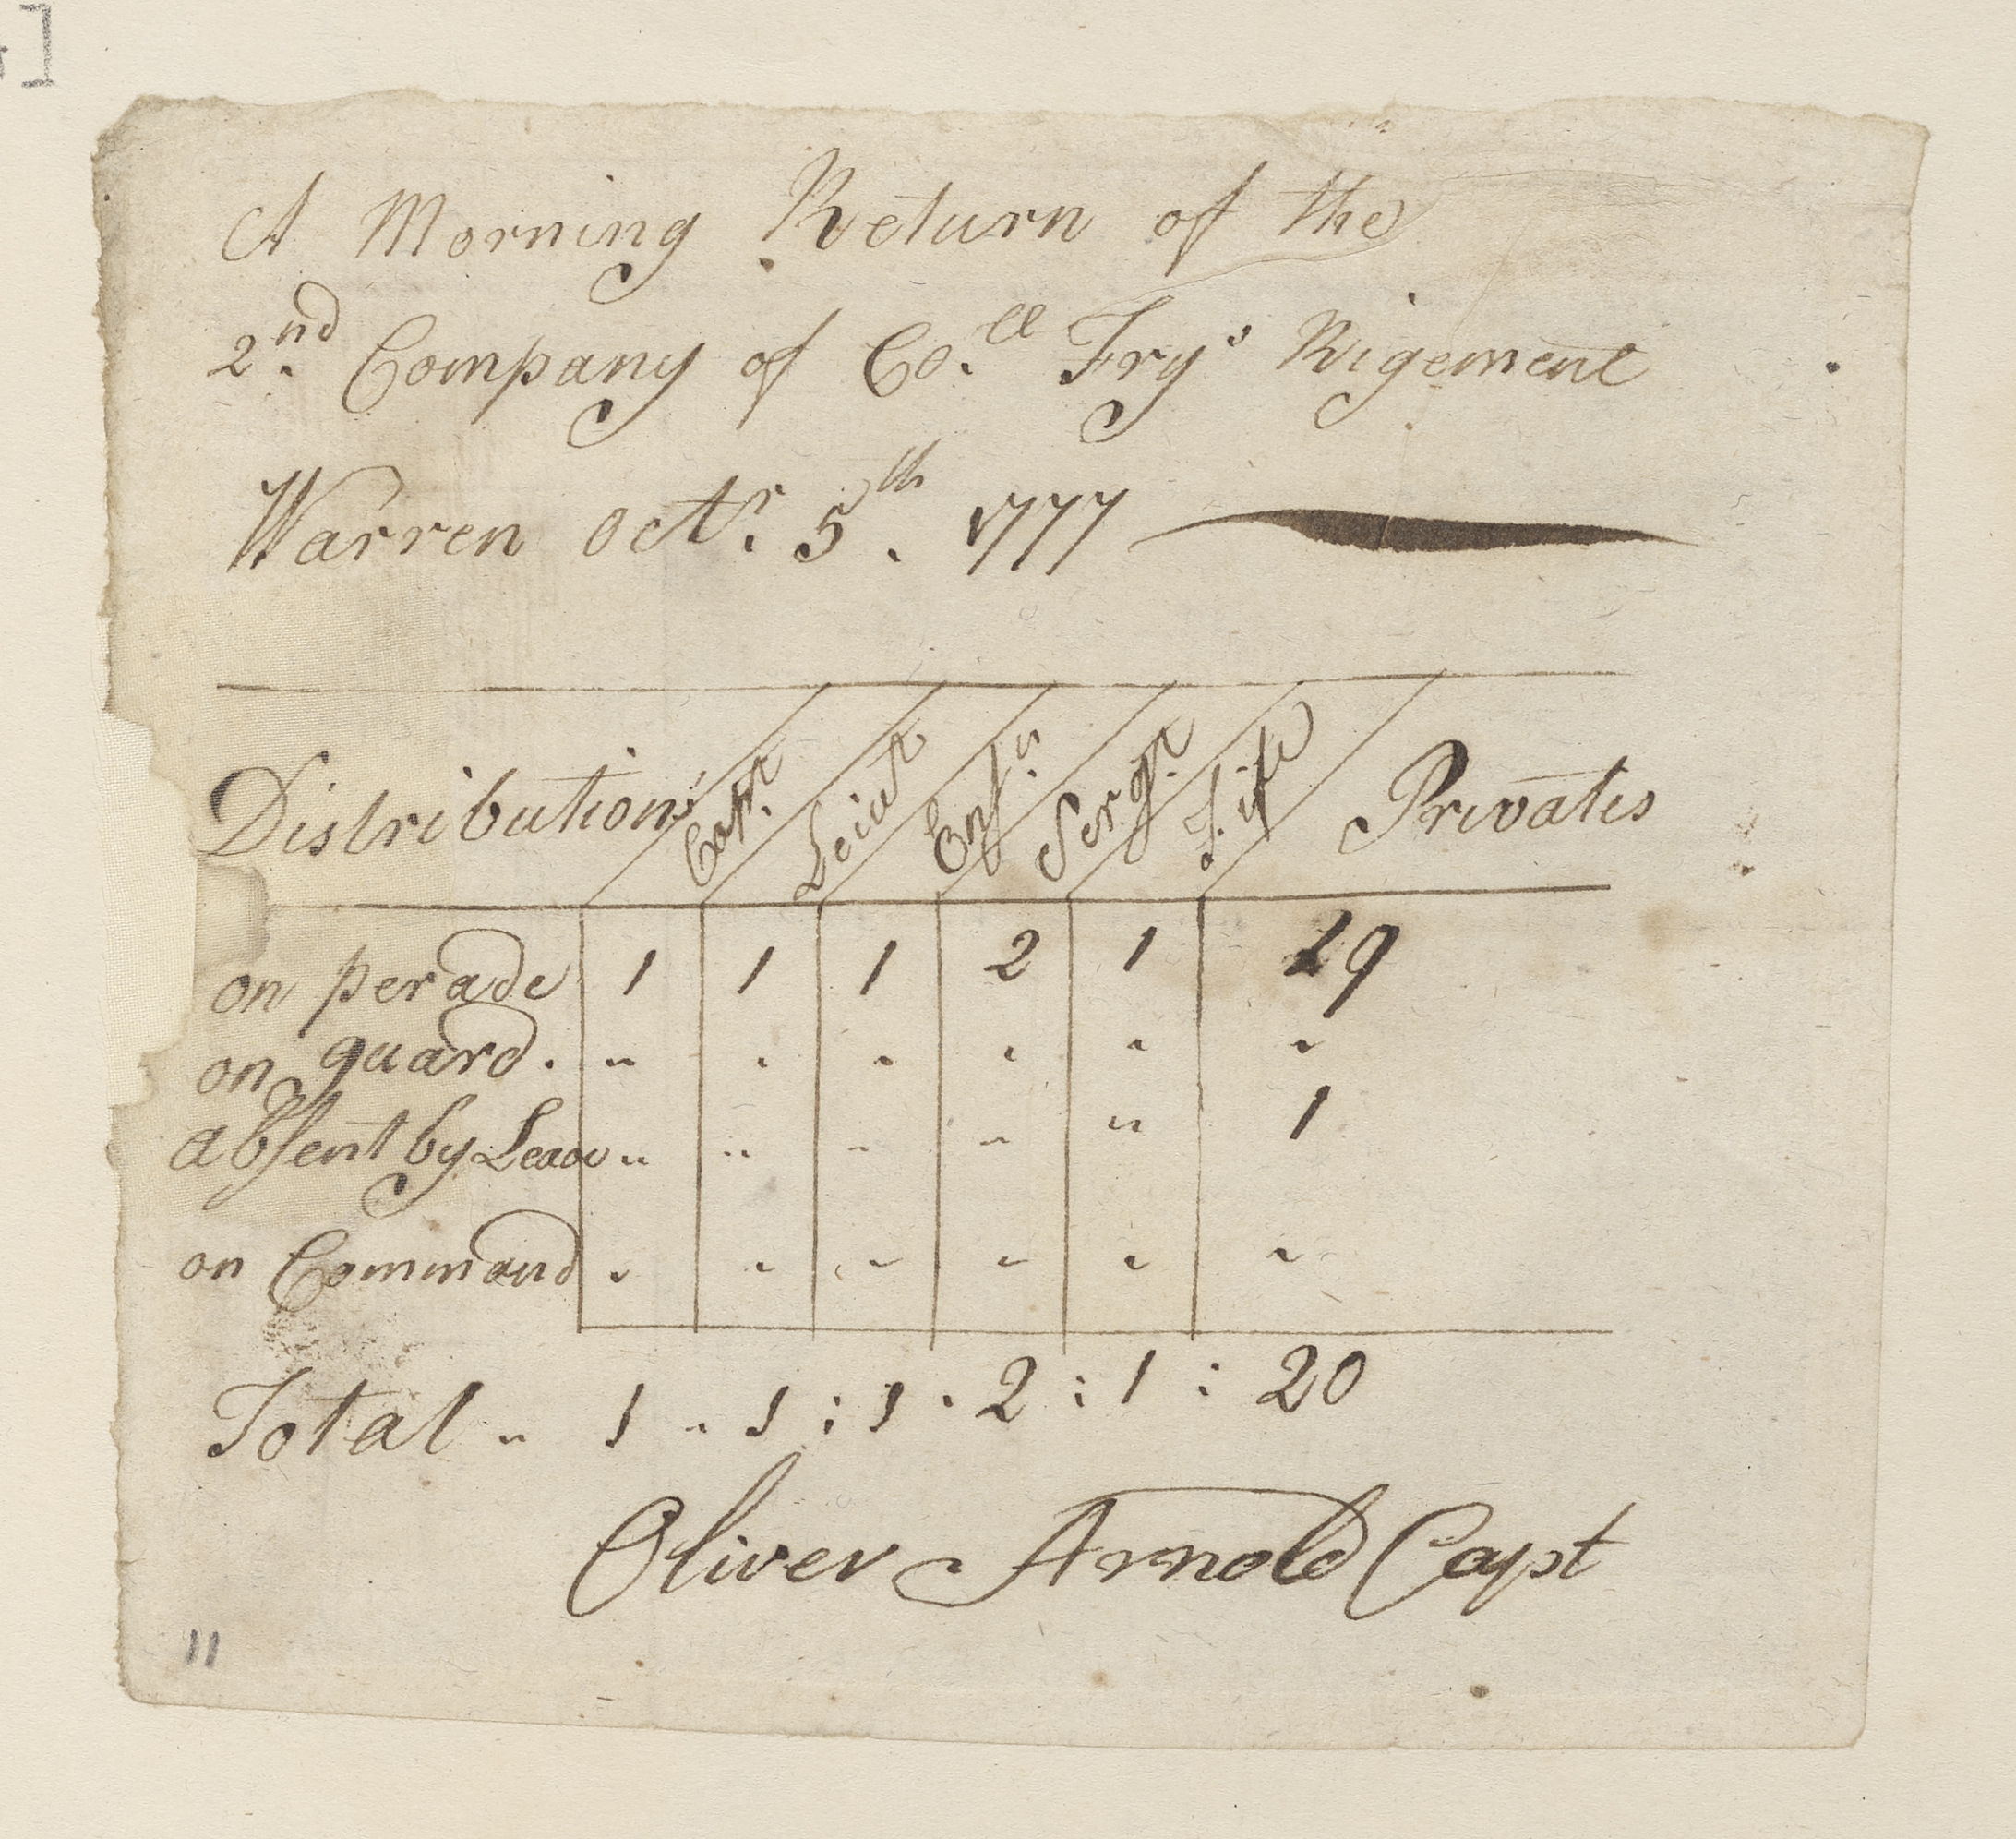 A Morning Return of the
2nd. Company of Co.ll Frys Rigement
Warren octr. 5th. 1777
Distribution Capt. Leiut Ensn Sergt. Fife Privates
on perade 1 1 1 2 1 19
on guard. " . . . . .
absent by Leave " " " " " 1
on Command . . . . . .
Total " 1 " 1 : 1 . 2 : 1 : 20
Oliver Arnold Capt
11